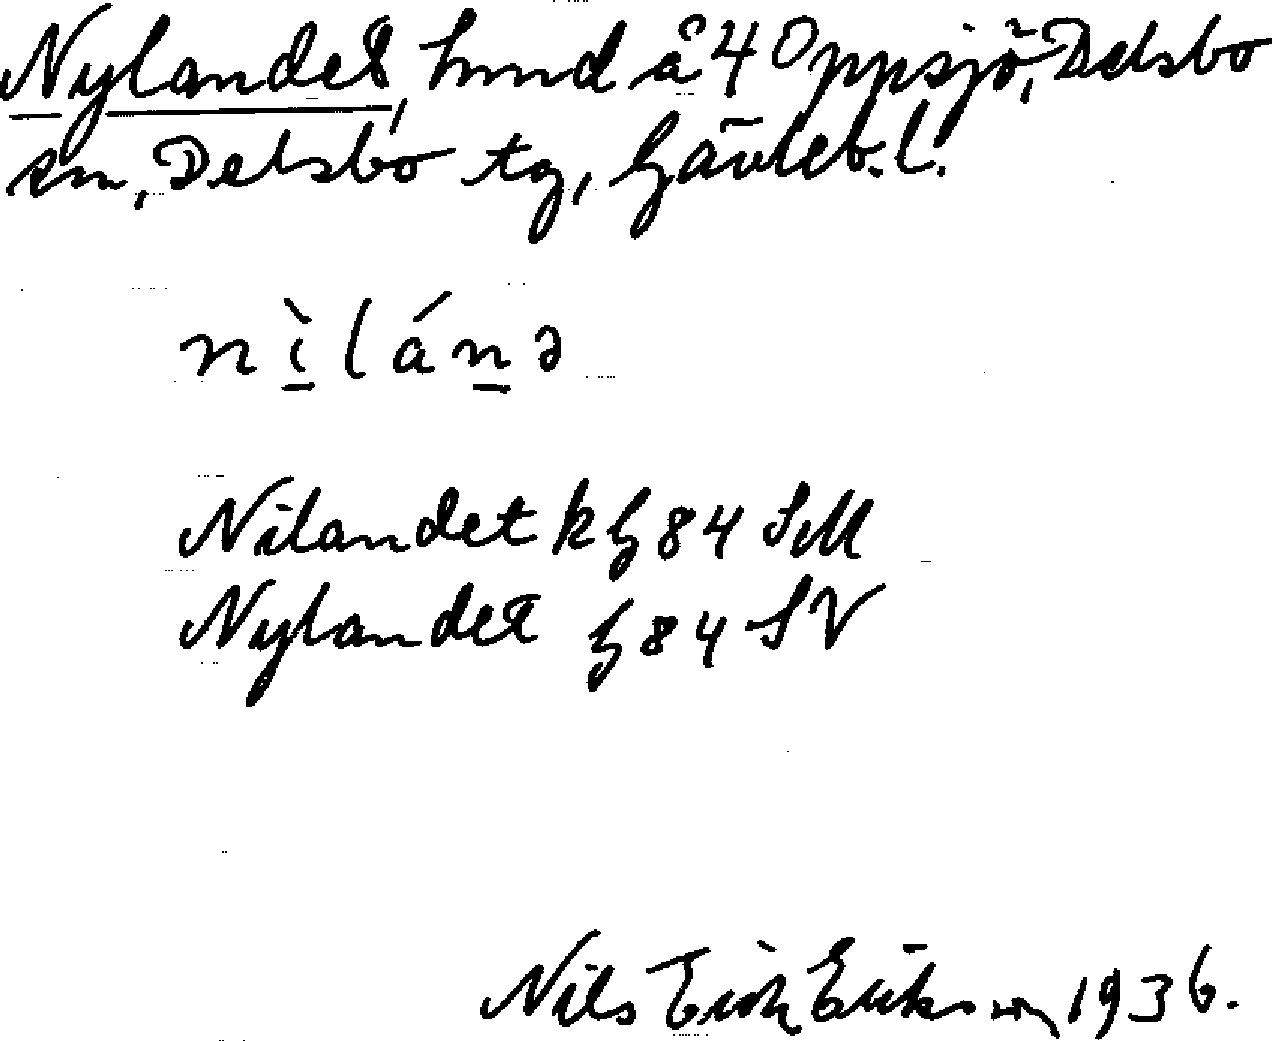 Nylandet, hmnd å 4 Oppsjö, Delsbo
sn, Delsbo tg, Gävleb. l.
nìlánə
Nilandet k G 84 SM
Nylandet G 84 SV
Nils Erik Erikson, 1936.